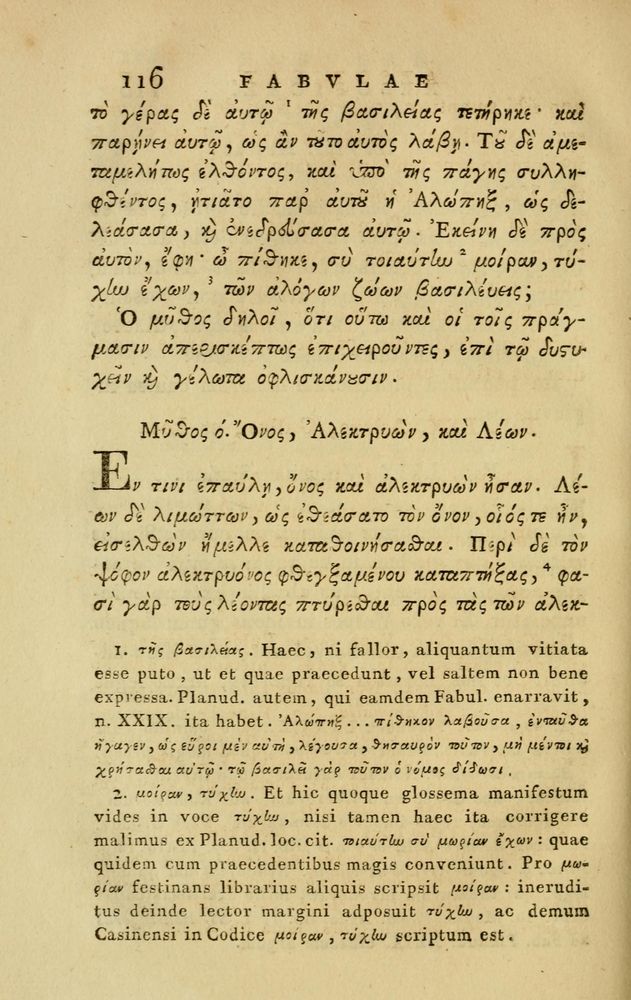 116 FABVLAE
τὸ γέρας δὲ ἀυτῷ ¹ τῆς βασιλείας τετήρηκε· καὶ
παρῄνει ἀυτῷ, ὡς ἂν τȣτο ἀυτὸς λάβῃ. Τȣ̃ δὲ ἀμε-
ταμελήτως ἐλθόντος, καὶ ὑπὸ τῆς πάγης συλλη-
φθέντος, ᾐτιᾶτο παρ ἀυτȣ̃ ἡ Ἀλώπηξ, ὡς δε-
λεάσασα, ϗ ἐνεδρεύσασα ἀυτῷ. Ἐκείνη δὲ πρὸς
ἀυτὸν, ἔφη· ὦ πίθηκε, σὺ τοιαύτην ² μοίραν, τύ-
χην ἔχων, ³ τῶν αλόγων ζώων βασιλέυεις;
Ὁ μῦθος δηλοῖ, ὅτι οὕτω καὶ οἱ τοῖς πράγ-
μασιν ἀπερισκέπτως ἐπιχειροῦντες, ἐπὶ τῷ δυςτυ-
χεῖν ϗ γέλωτα ὀφλισκάνȣσιν.
Μῦθος ό. Ὄνος, Ἀλεκτρυὼν, καὶ Λέων.
Εν τινι ἐπαύλῃ, ὄνος καὶ ἀλεκτρυὼν ἦσαν. Λέ-
ων δὲ λιμώττων, ὡς ἐθεάσατο τὸν ὄνον, οἷός τε ἦν,
εισελθὼν ἤμελλε καταθοινήσασθαι. Περὶ δὲ τὸν
ψόφον ἀλεκτρυόνος φθεγξαμένου καταπτήξας, ⁴ φα-
σὶ γὰρ τοὺς λέοντας πτύρεσθαι πρὸς τὰς τῶν ἀλεκ-
1. τῆς βασιλείας. Haec, ni fallor, aliquantum vitiata
esse puto, ut et quae praecedunt, vel saltem non bene
expressa. Planud. autem, qui eamdem Fabul. enarravit,
n. XXIX. ita habet. Ἀλώπηξ... πίθηκον λαβοῦσα, ἐνταῦθα
ἤγαγεν, ὡς εὕροι μὲν αὐτὴ, λέγουσα, θησαυρὸν τοῦτον, μὴ μέντοι ϗ
χρήσασθαι αυτῷ· τῷ βασιλεῖ γὰρ τοῦτον ὁ νόμος δίδωσι.
2. μοίραν, τύχην. Et hic quoque glossema manifestum
vides in voce τύχην, nisi tamen haec ita corrigere
malimus ex Planud. loc. cit. τοιαύτην σὺ μωρίαν ἔχων: quae
quidem cum praecedentibus magis conveniunt. Pro μω-
ρίαν festinans librarius aliquis scripsit μοίραν: inerudi-
tus deinde lector margini adposuit τύχην, ac demum
Casinensi in Codice μοίραν, τύχην scriptum est.